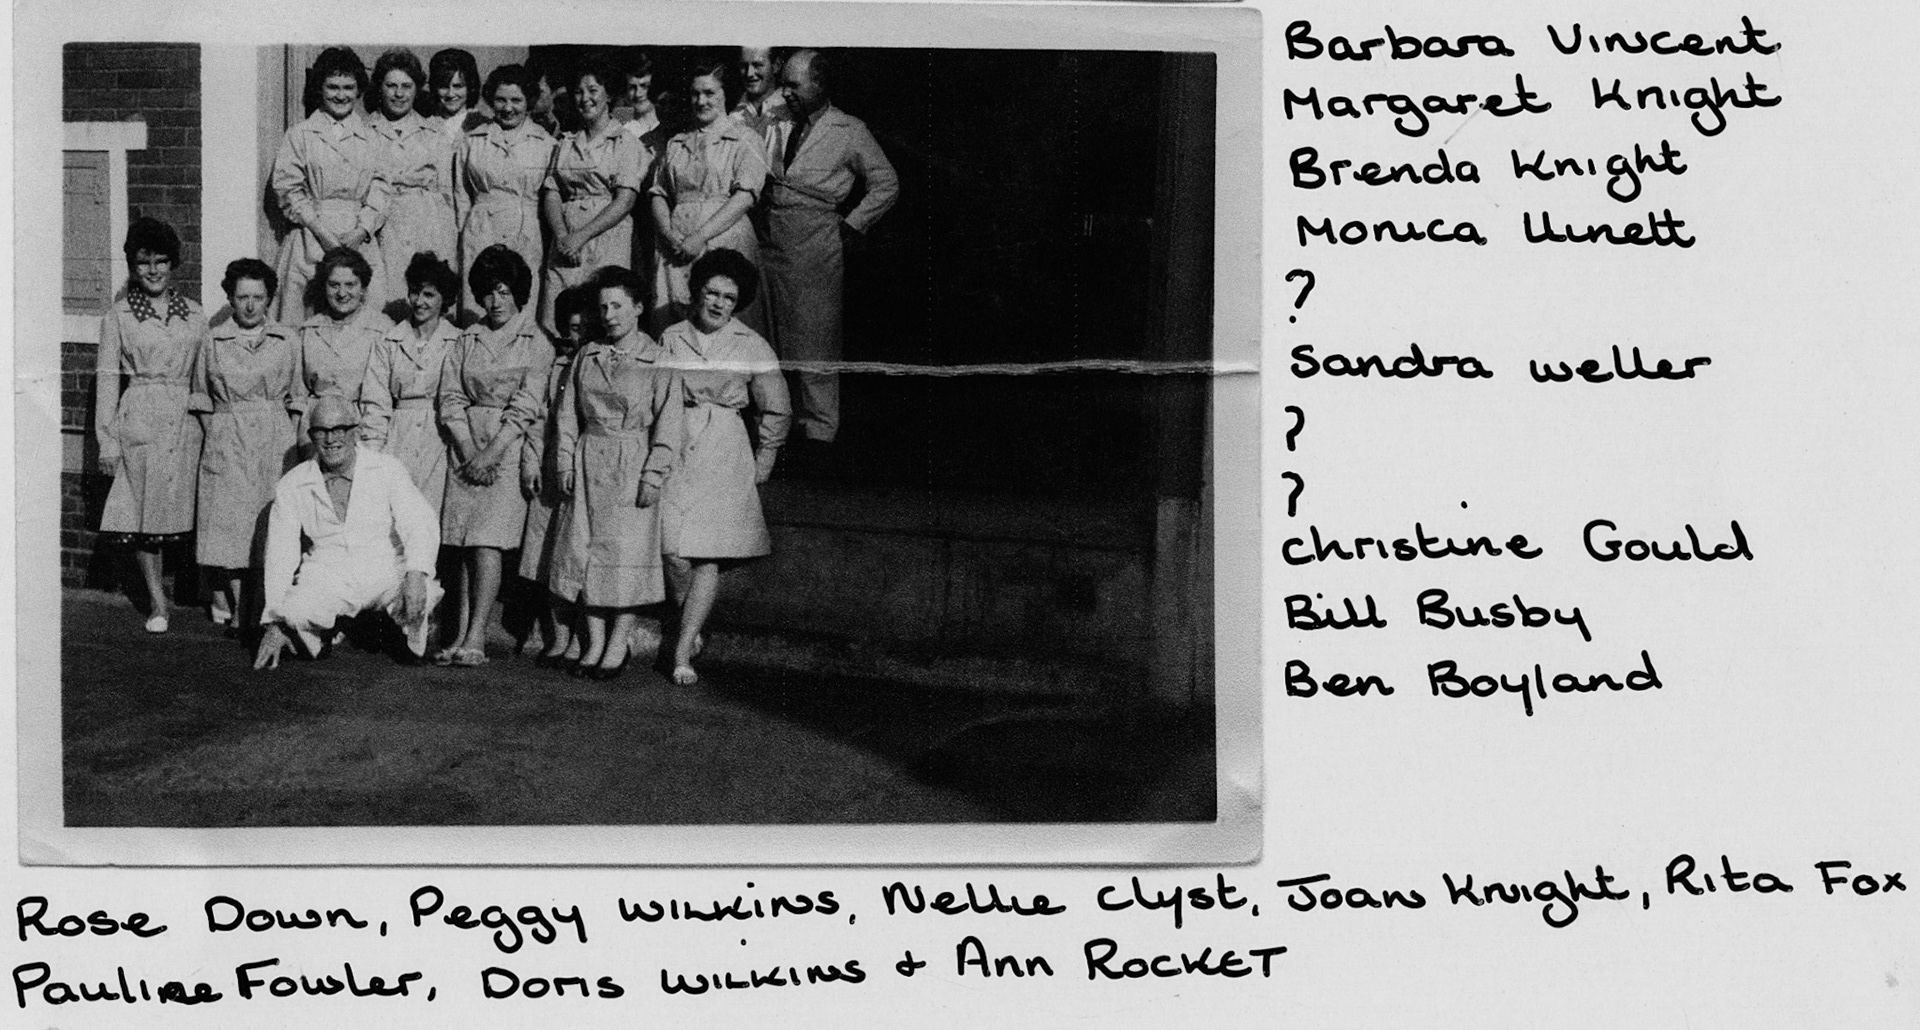 Barbara Vincent
Margaret Knight
Brenda Knight
Monica Llinett
?
Sandra weller
?
?
christine Gould
Bill Busby
Ben Boyland
Rose Down, Peggy Wilkins, Nellie Clyst, Joan Knight, Rita Fox
Pauline Fowler, Doris Wilkins & Ann ROCKET